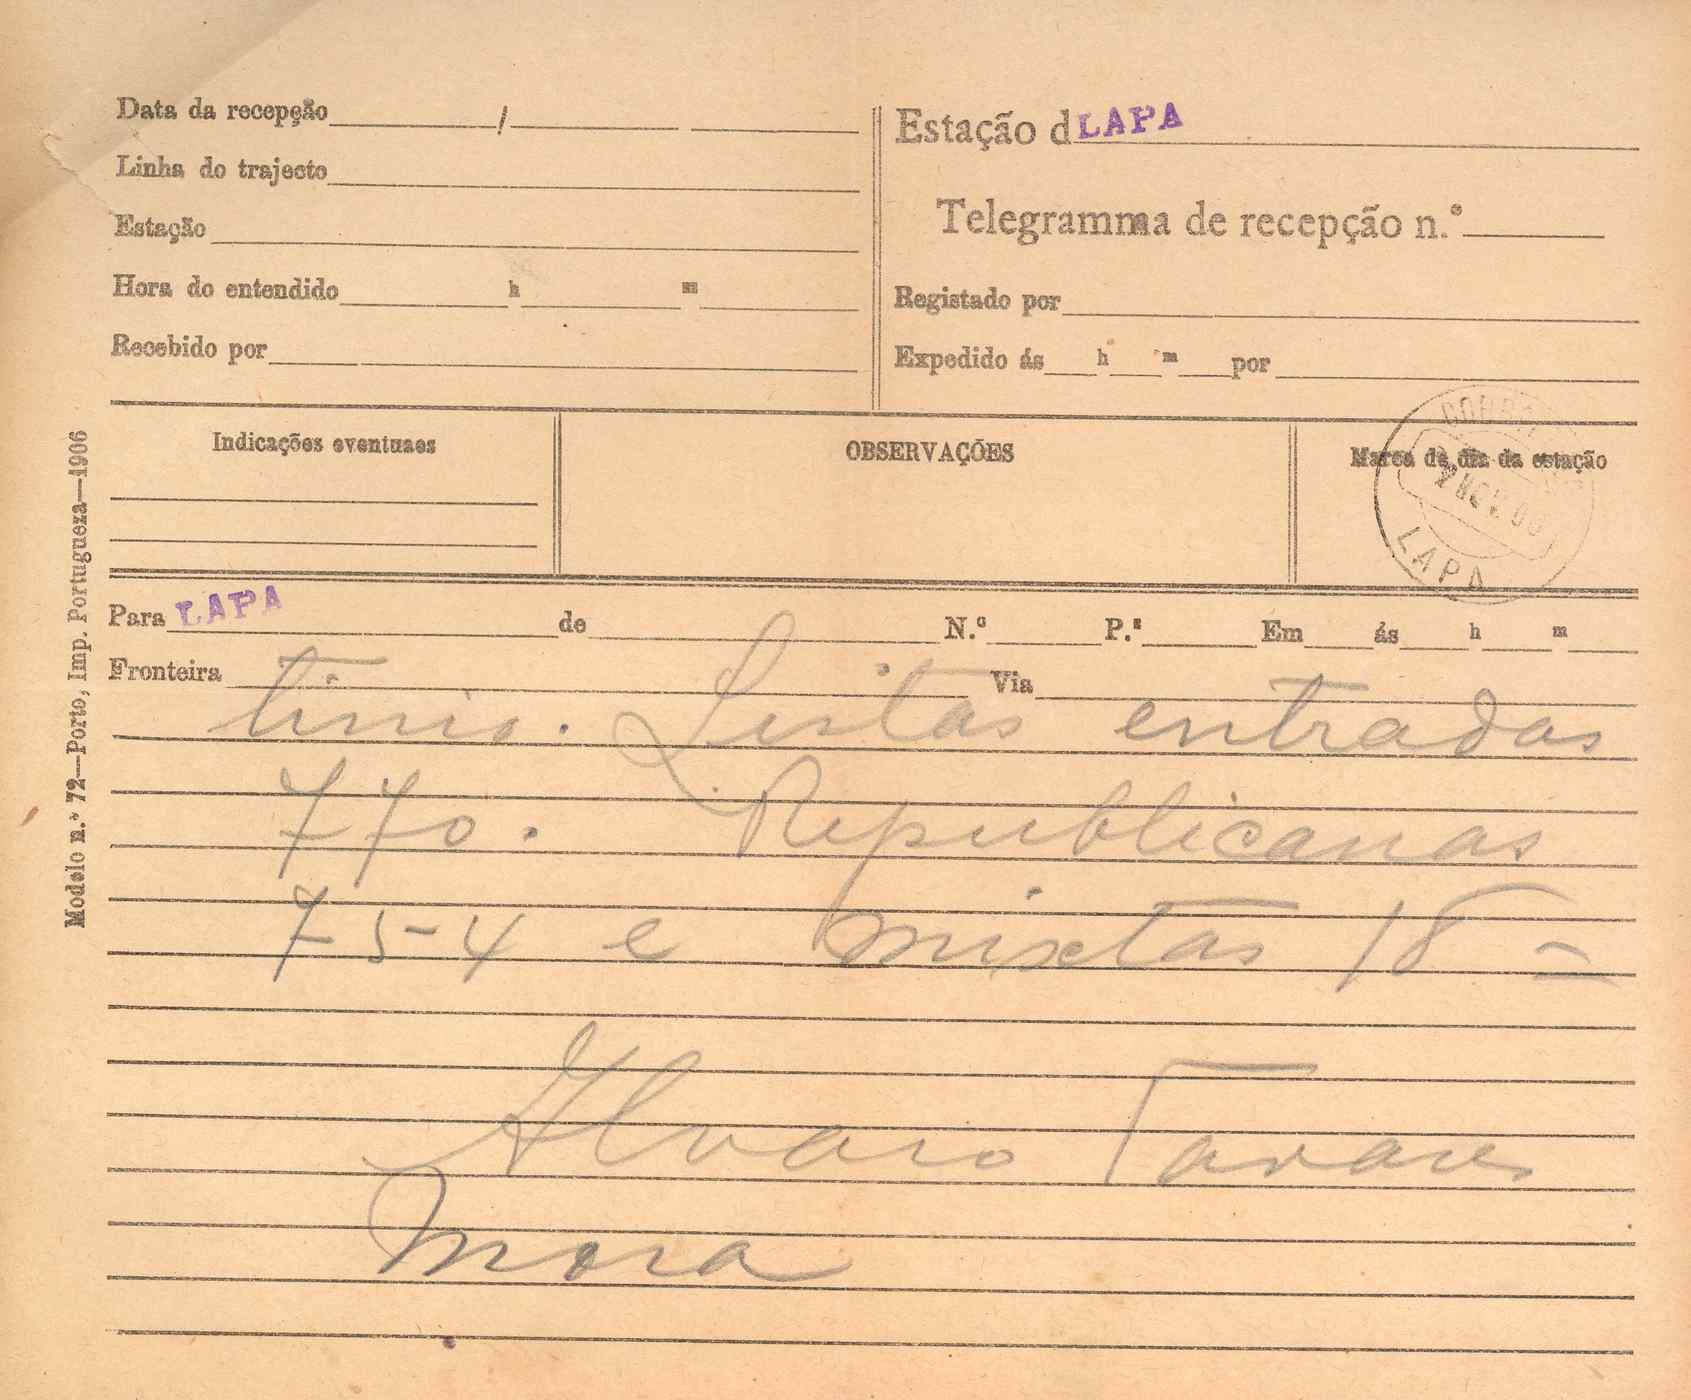 Data da recepção / 
Linha do trajecto
Estação
Hora do entendido h m
Recebido por
Estação d LAPA
Telegramma de recepção n.º
Registado por
Expedido ás h m por
Indicações eventuaes
OBSERVAÇÕES
Marca de dia da estação
2 NOV. 
LAPA
Modelo n.º 72—Porto, Imp. Portugueza—1906
Para LAPA de N.º P.ª Em ás h m
Fronteira Via
tinio. Listas entradas
770. Republicanas
754 e mixtas 18 =
Alvaro Tavares
Mora